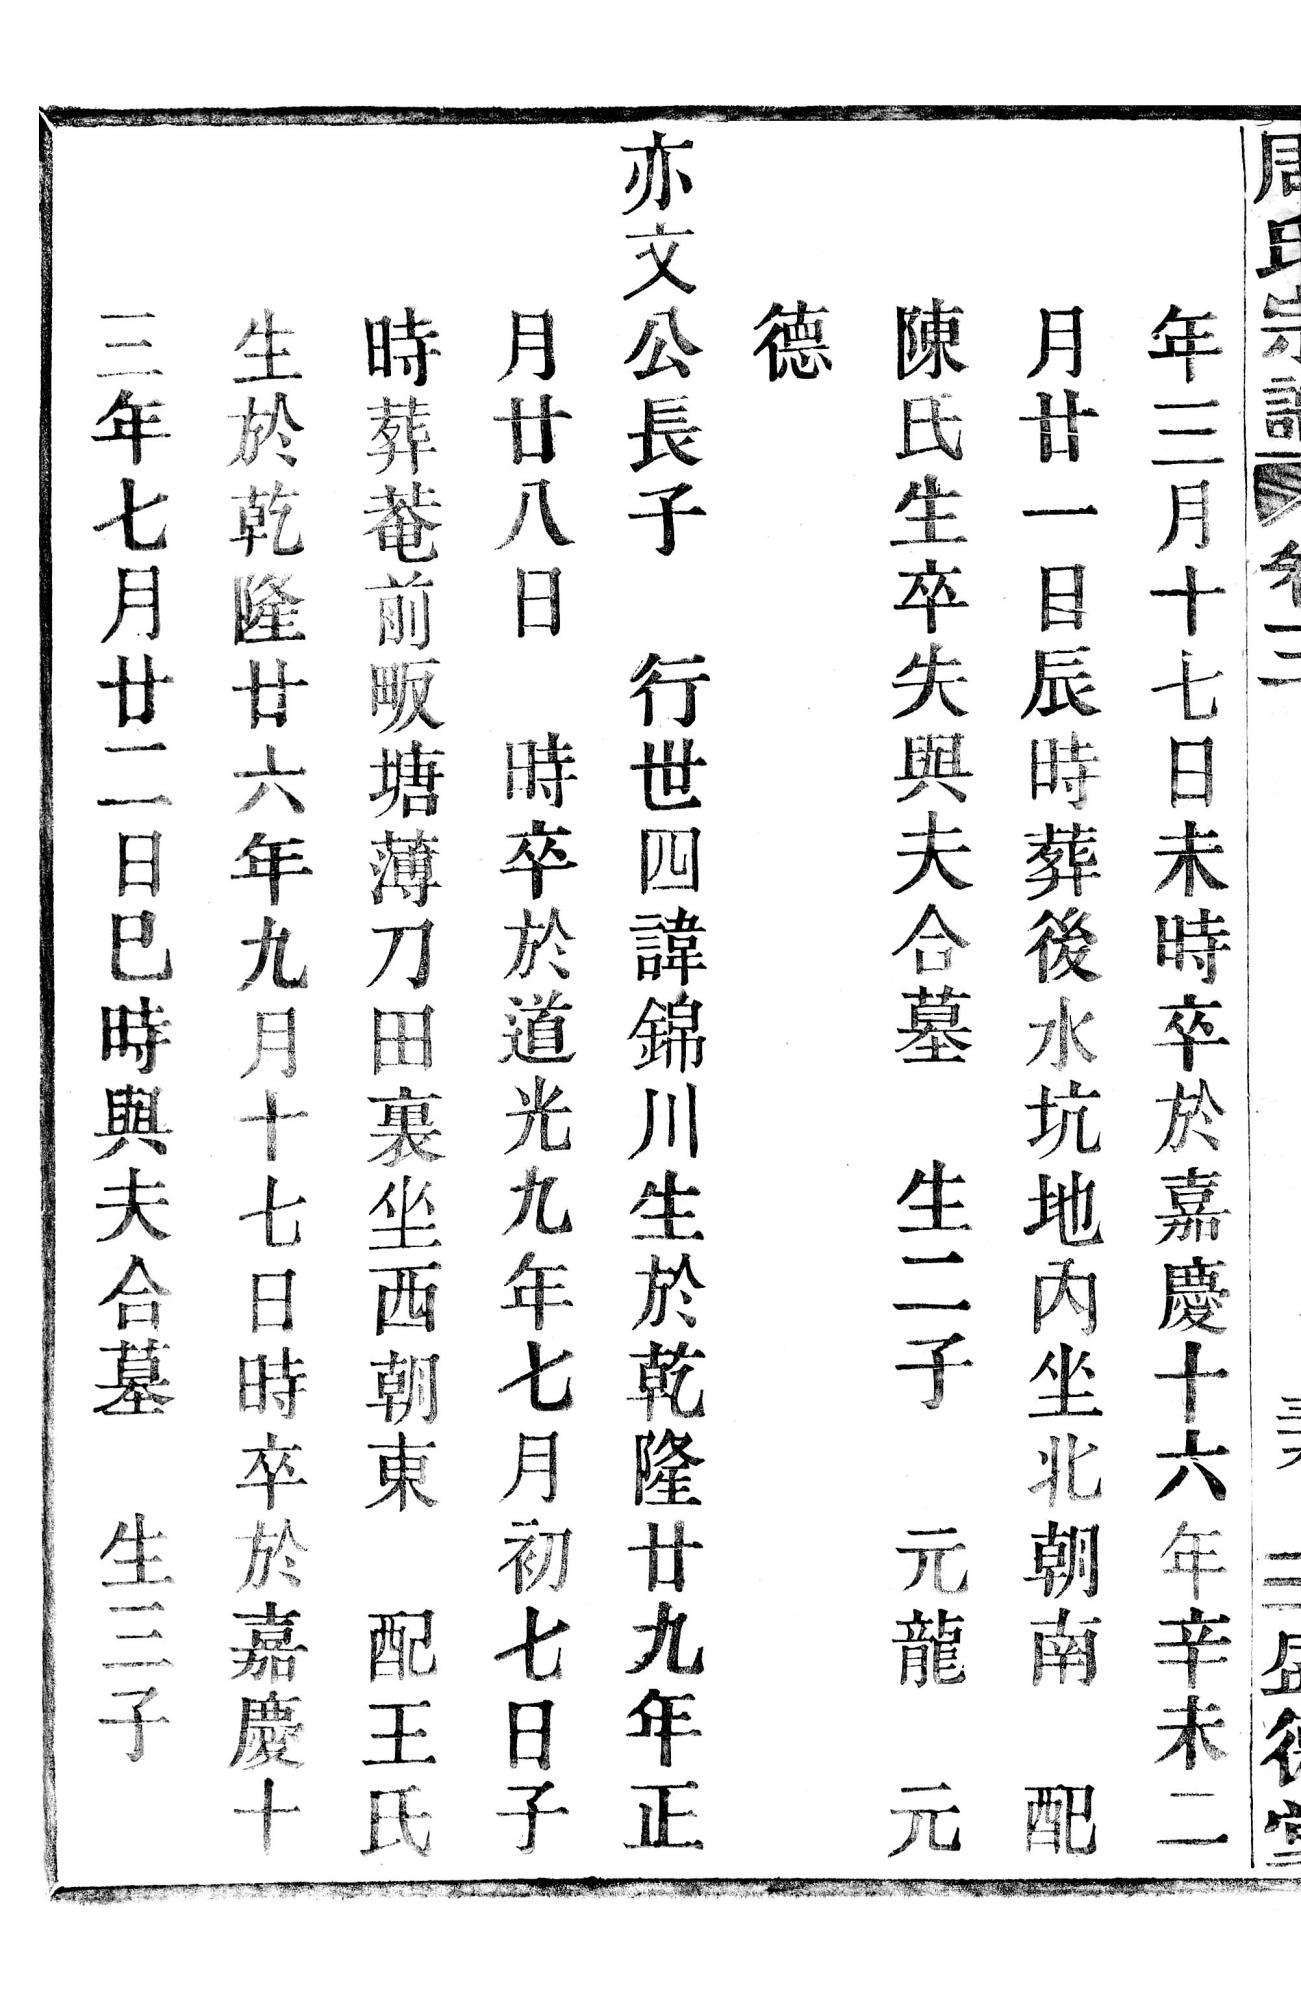 周氏宗譜 卷二 三六 三盛德堂
年三月十七日未時卒於嘉慶十六年辛未二
月廿一日辰時葬後水坑地內坐北朝南 配
陳氏生卒失與夫合墓 生二子 元龍 元
德
亦文公長子 行世四諱錦川生於乾隆廿九年正
月廿八日 時卒於道光九年七月初七日子
時葬菴前畈塘薄刀田裏坐西朝東 配王氏
生於乾隆廿六年九月十七日時卒於嘉慶十
三年七月廿二日巳時與夫合墓 生三子